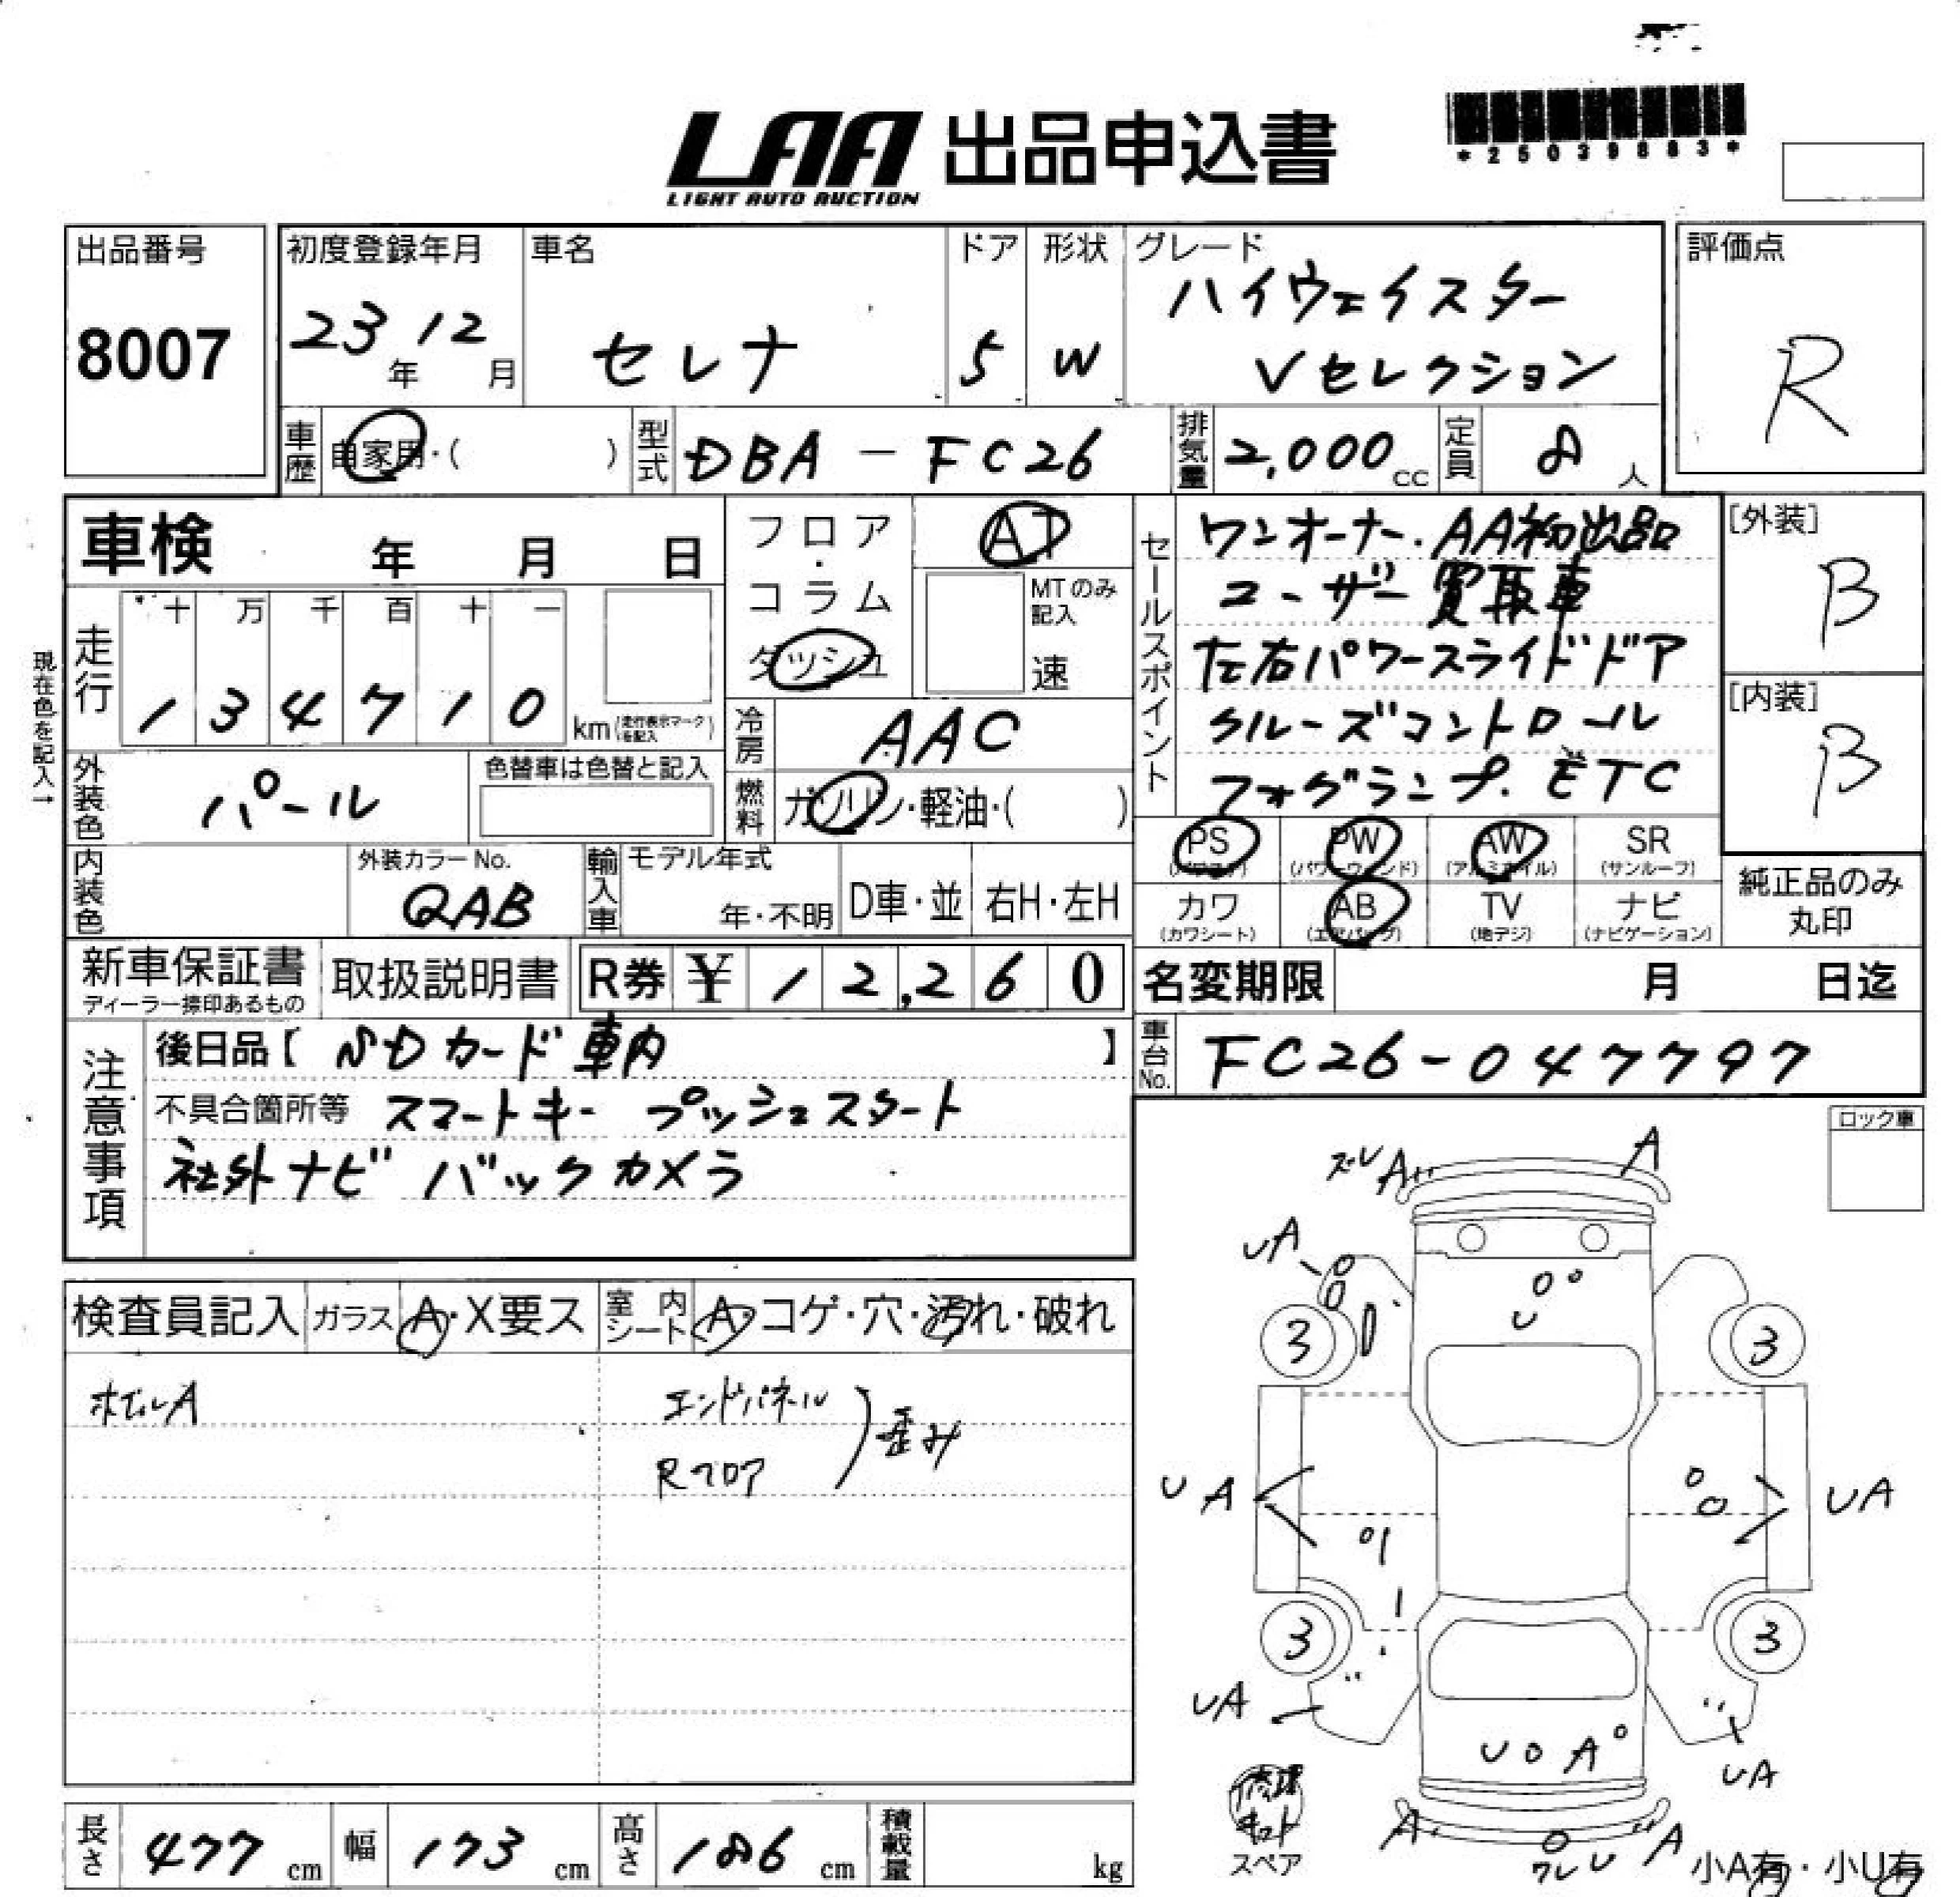 LAA 出品申込書
LIGHT AUTO AUCTION
*25039883*
出品番号
8007
初度登録年月
23年 12月
車名
セレナ
ドア
5
形状
W
グレード
ハイウェイスター
Vセレクション
評価点
R
車歴 自家用・( )
型式 DBA - FC26
排気量 2,000 cc
定員 8 人
車検 年 月 日
フロア・コラム
ダッシュ
AT
MTのみ記入
速
セールスポイント
ワンオーナー.AA初出品
ユーザー買取車
左右パワースライドドア
クルーズコントロール
フォグランプ.ETC
[外装]
B
[内装]
B
現在色を記入→
走行
十 万 千 百 十 一
1 3 4 7 1 0 km (走行表示マークを記入)
冷房 AAC
燃料 ガソリン・軽油・( )
外装色 パール
色替車は色替と記入
内装色
外装カラーNo.
QAB
輸入車
モデル年式
年・不明
D車・並
右H・左H
PS (パワステ)
PW (パワーウィンド)
AW (アルミホイル)
SR (サンルーフ)
カワ (カワシート)
AB (エアバッグ)
TV (地デジ)
ナビ (ナビゲーション)
純正品のみ
丸印
新車保証書
ディーラー捺印あるもの
取扱説明書
R券 ¥ 1 2,2 6 0
名変期限 月 日迄
車台No. FC26-047797
注意事項
後日品【 SDカード車内 】
不具合箇所等 スマートキー プッシュスタート
社外ナビ バックカメラ
ロック車
検査員記入
ガラス A・X要ス
室内シート A・コゲ・穴・汚れ・破れ
ホイルA
エンドパネル
Rフロア
歪み
ズレ A
A
UA
U
3
3
UA
UA
3
3
UA
U A
UA
修理キット
スペア
A
ワレ U A
小A有・小U有
長さ 477 cm
幅 173 cm
高さ 186 cm
積載量 kg